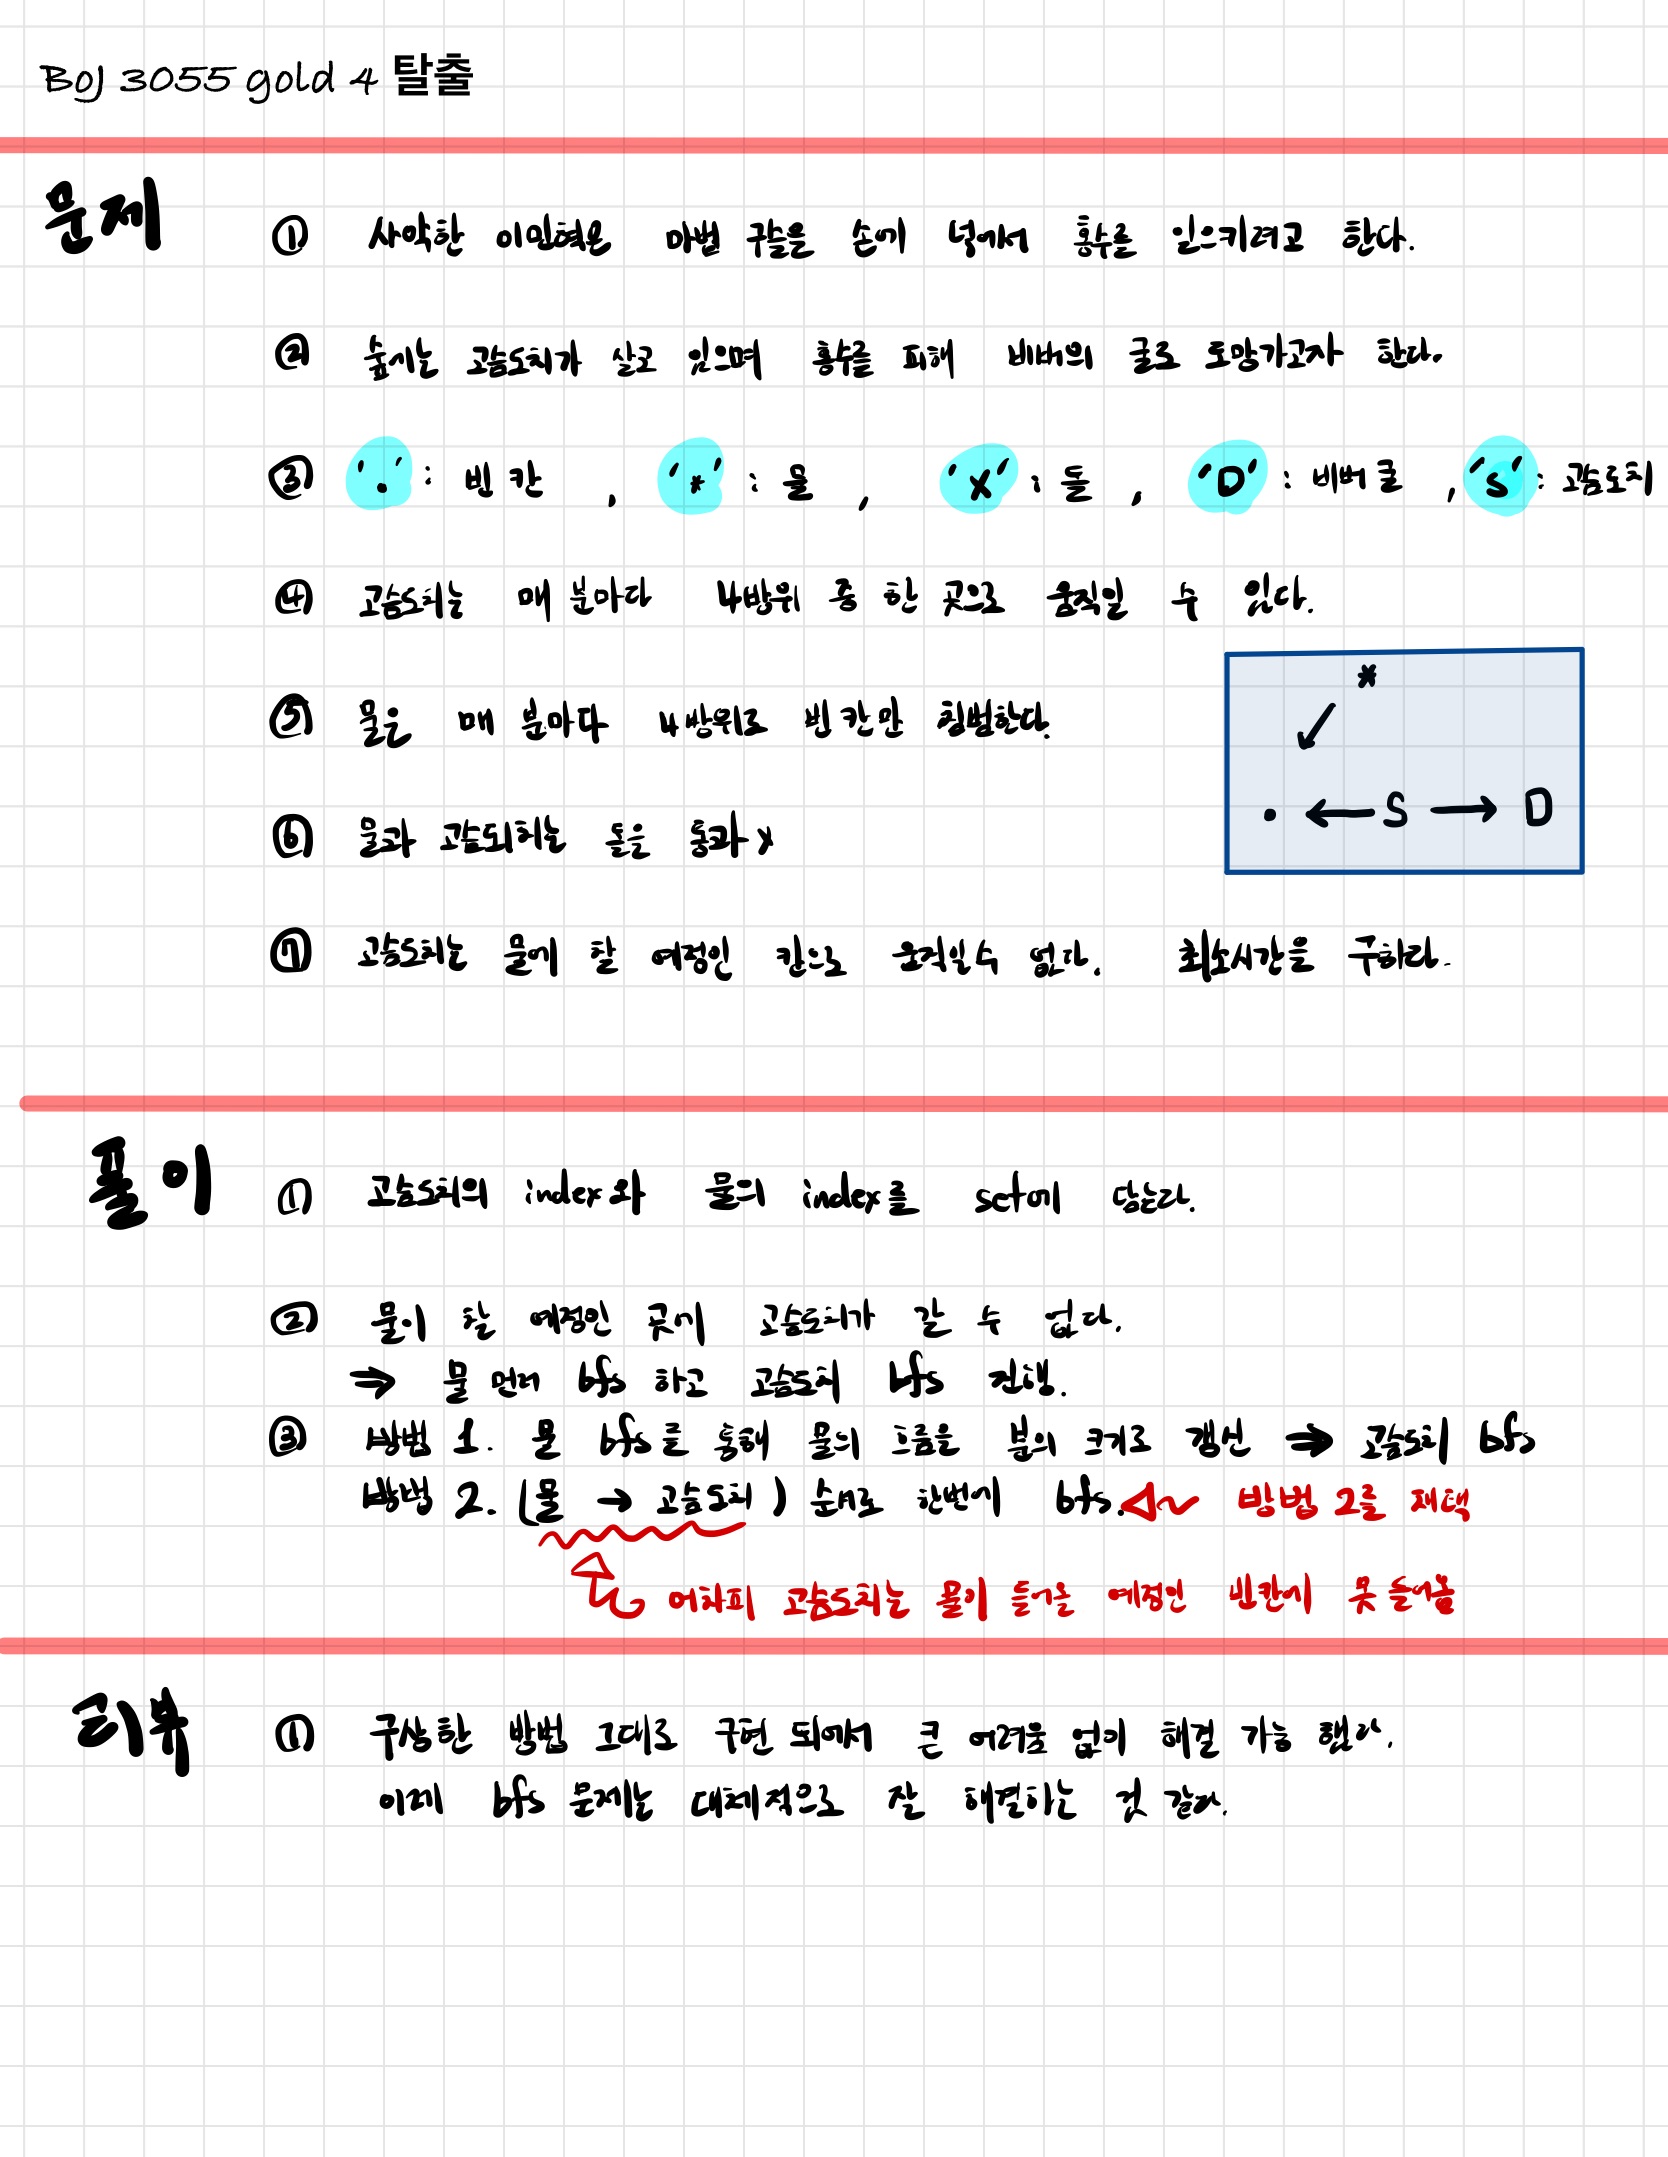 BOJ 3055 gold 4 탈출
문제
① 사악한 이민혁은 마법 구슬을 손에 넣에서 홍수를 일으키려고 한다.
② 숲에는 고슴도치가 살고 있으며 홍수를 피해 비버의 굴로 도망가고자 한다.
③ '.' : 빈 칸 , '*' : 물 , 'X' : 돌 , 'D' : 비버 굴 , 'S' : 고슴도치
④ 고슴도치는 매 분마다 4방위 중 한 곳으로 움직일 수 있다.
⑤ 물은 매 분마다 4방위로 빈 칸만 침범한다.
*
. ← S → D
⑥ 물과 고슴도치는 돌을 통과 x
⑦ 고슴도치는 물에 찰 예정인 칸으로 움직일 수 없다. 최소시간을 구하라.
풀이
① 고슴도치의 index와 물의 index를 set에 담는다.
② 물이 찰 예정인 곳에 고슴도치가 갈 수 없다.
⇒ 물 먼저 bfs 하고 고슴도치 bfs 진행.
③ 방법 1. 물 bfs를 통해 물의 흐름을 분의 크기로 갱신 ⇒ 고슴도치 bfs
방법 2. (물 → 고슴도치) 순서로 한번에 bfs. 방법 2를 채택
어차피 고슴도치는 물이 들어올 예정인 빈칸에 못 들어옴
리뷰
① 구상한 방법 그대로 구현 되어서 큰 어려움 없이 해결 가능 했다.
이제 bfs 문제는 대체적으로 잘 해결하는 것 같다.